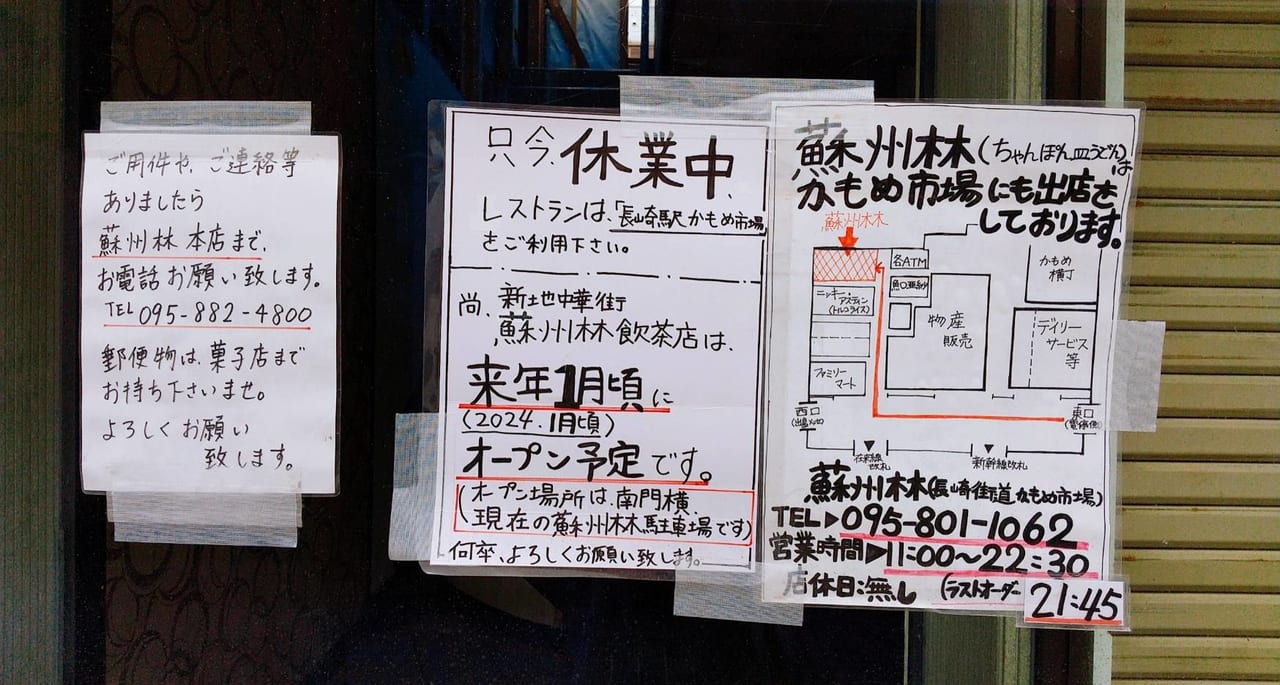 ご用件や、ご連絡等
ありましたら
蘇州林 本店まで、
お電話お願い致します。
TEL 095-882-4800
郵便物は、菓子店まで
お持ち下さいませ。
よろしくお願い
致します。
只今、休業中、
レストランは、「長崎駅かもめ市場」
をご利用下さい。
尚、新地中華街
蘇州林飲茶店は、
来年1月頃に
(2024.1月頃)
オープン予定です。
(オープン場所は、南門横、
現在の蘇州林駐車場です)
何卒、よろしくお願い致します。
蘇州林(ちゃんぽん皿うどん)は
かもめ市場にも出店を
しております。
蘇州林
各ATM
かもめ
横丁
ニッキー・
アースティン
(トルコライス)
物産
販売
デイリー
サービス
等
ファミリー
マート
西口
東口
(電停側)
在来線
改札
新幹線改札
蘇州林(長崎街道かもめ市場)
TEL▶095-801-1062
営業時間▶11:00〜22:30
店休日:無し (ラストオーダー
21:45